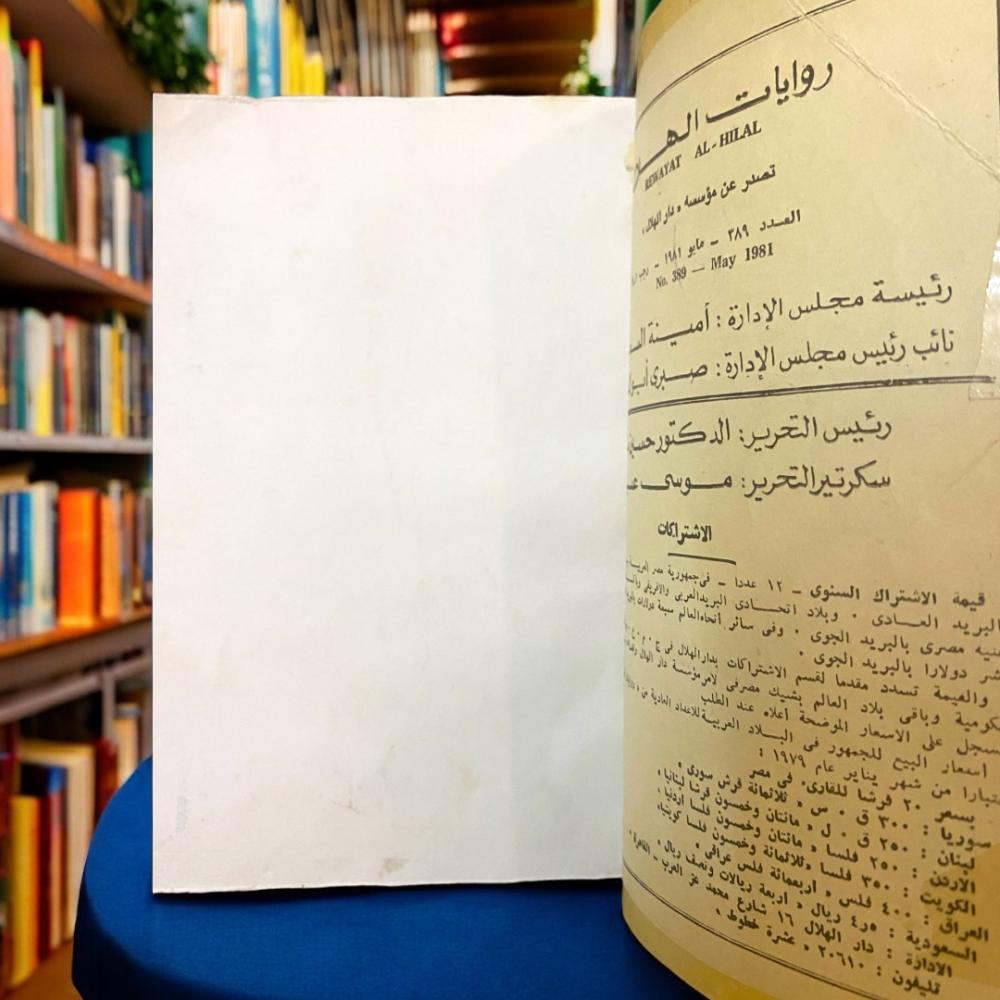 روايات الهلال
REWAYAT AL-HILAL
تصدر عن مؤسسة « دار الهلال »
العدد ٣٨٩ - مايو ١٩٨١ - رجب
No. 389 — May 1981
رئيسة مجلس الإدارة : أمينة
نائب رئيس مجلس الإدارة : صبرى
رئيس التحرير : الدكتور
سكرتير التحرير : موسى
الاشتراكات
قيمة الاشتراك السنوى - ١٢ عددا - فى جمهورية مصر العربية
البريد العادى . وبلاد اتحادى البريد العربى والافريقى
مصرى بالبريد الجوى . وفى سائر أنحاء العالم سبعة دولارات
دولارا بالبريد الجوى .
والقيمة تسدد مقدما لقسم الاشتراكات بدار الهلال فى ج . م . ع
وباقى بلاد العالم بشيك مصرفى لامر مؤسسة دار الهلال
على الاسعار الموضحة أعلاه عند الطلب
أسعار البيع للجمهور فى البلاد العربية للاعداد العادية
من شهر يناير عام ١٩٧٩ :
بسعر ٢٠ قرشا للقارىء فى مصر
سوريا : ٣٠٠ ق . س « ثلاثمائة قرش سورى »
لبنان : ٢٥٠ ق . ل « مائتان وخمسون قرشا لبنانيا »
الاردن : ٢٥٠ فلسا « مائتان وخمسون فلسا اردنيا »
الكويت : ٣٥٠ فلسا « ثلاثمائة وخمسون فلسا كويتيا »
العراق : ٤٠٠ فلس « اربعمائة فلس عراقى »
السعودية : ٤٫٥ ريال « اربعة ريالات ونصف ريال »
الادارة : دار الهلال ١٦ شارع محمد عز العرب - القاهرة
تليفون : ٢٠٦١٠ « عشرة خطوط »